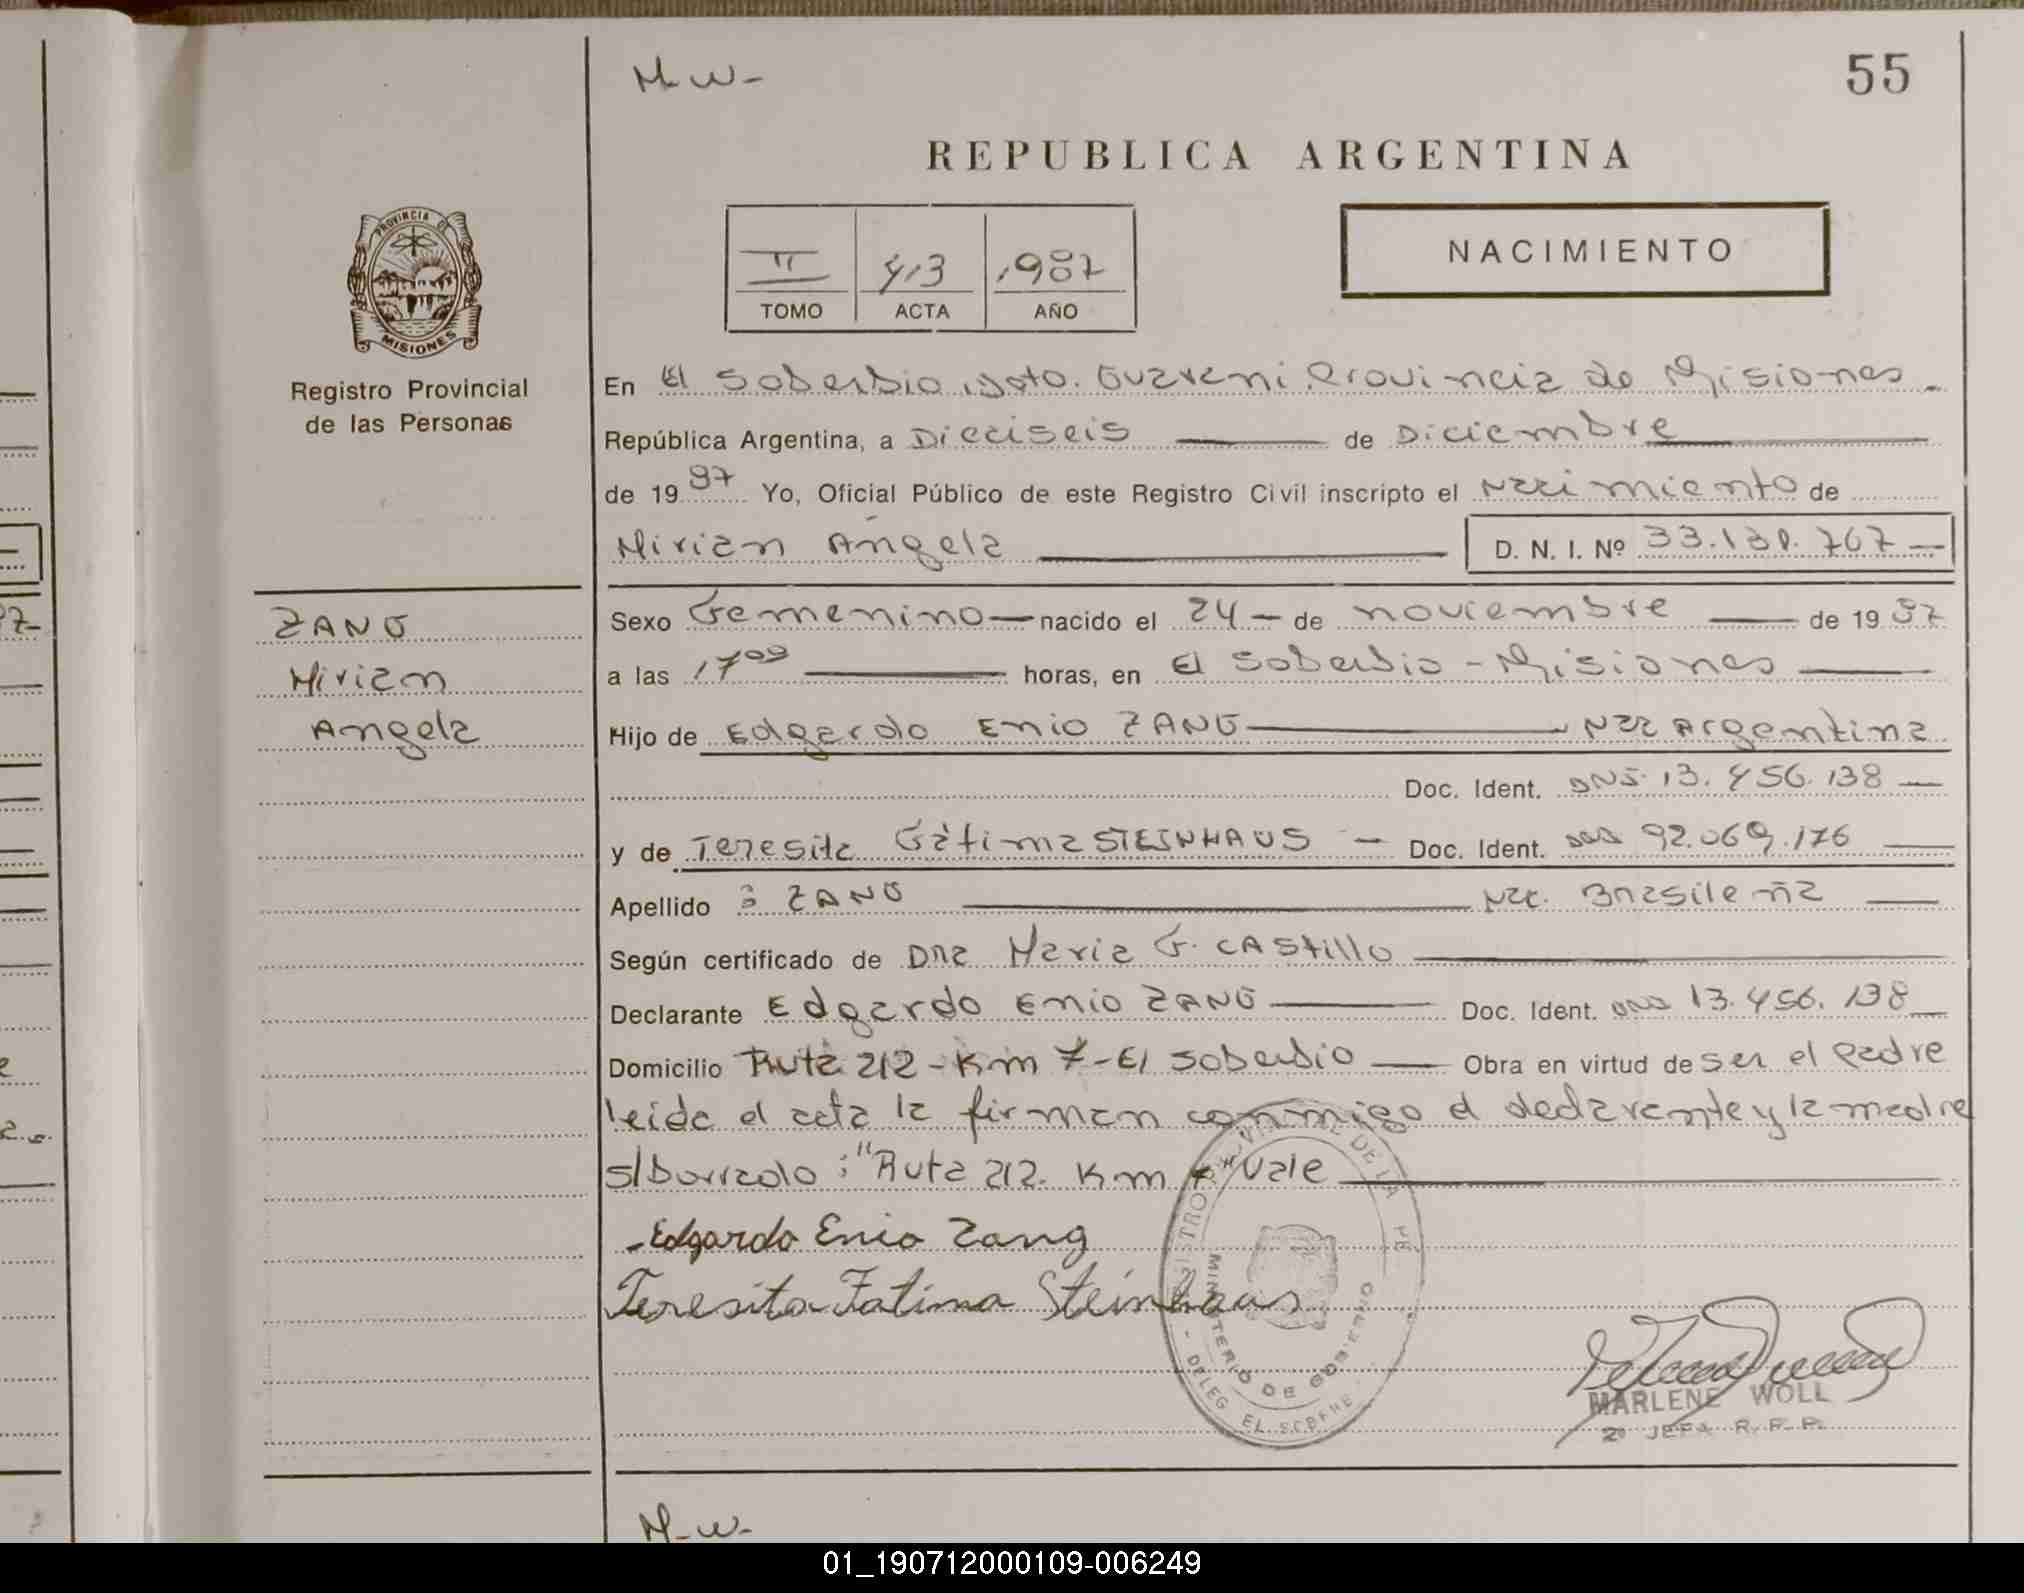 M. W-
55
REPUBLICA ARGENTINA
PROVINCIA DE
MISIONES
II 413 1987
TOMO ACTA AÑO
NACIMIENTO
Registro Provincial
de las Personas
En El Soberbio, Dpto. Guarani, Provincia de Misiones.
República Argentina, a Dieciseis de Diciembre
de 1987 Yo, Oficial Público de este Registro Civil inscripto el Nacimiento de
Mirian Angela D. N. I. Nº 33.130.767
ZANG
Mirian
Angela
Sexo Femenino nacido el 24 de noviembre de 1987
a las 17 horas, en El Soberbio - Misiones
Hijo de Edgardo Enio ZANG Nac Argentina
Doc. Ident. DNI. 13.456.138
y de Teresita Fátima STEINHAUS Doc. Ident. DNI 92.069.176
Apellido : ZANG Nac. Brasileña
Según certificado de Dra Maria G. CAStillo
Declarante Edgardo Enio ZANG Doc. Ident. DNI 13.456.138
Domicilio Ruta 212 - Km 7 - El Soberbio Obra en virtud de ser el Padre
leida el acta la firman conmigo el declarante y la madre
s/borrado: "Ruta 212. Km 7" Vale
- Edgardo Enio Zang
Teresita Fatima Steinhaus
MINISTERIO DE GOBIERNO
DELEG EL SOBERB
MARLENE WOLL
2º JEFA R.P.P.
M-W-
01_190712000109-006249